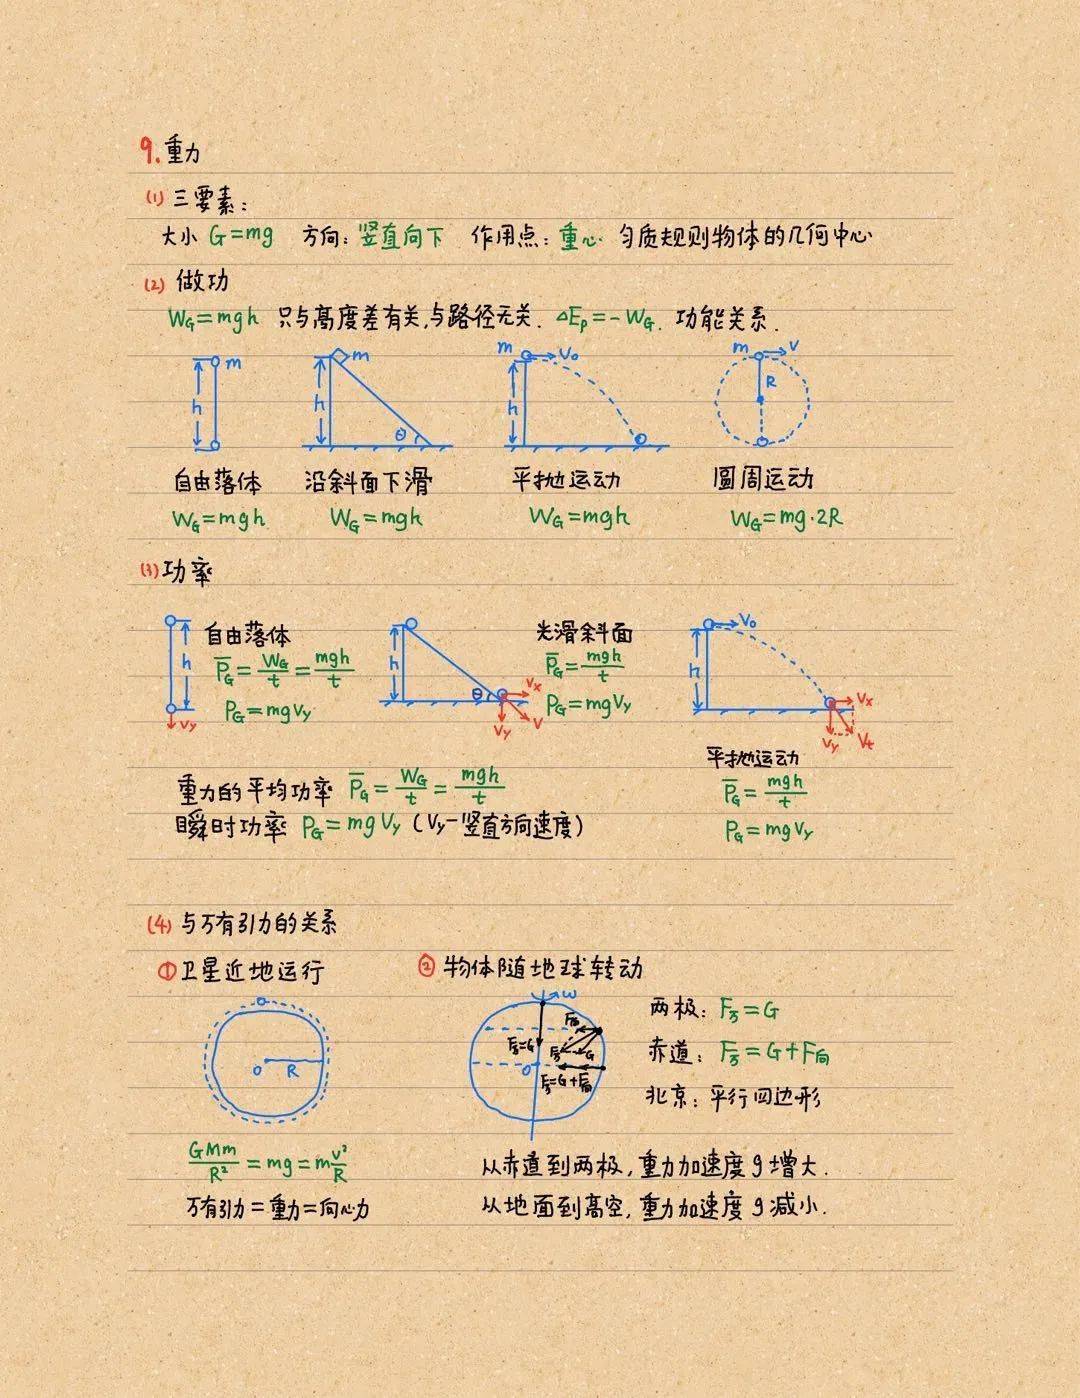 9.重力
(1) 三要素:
大小 G=mg 方向:竖直向下 作用点:重心 匀质规则物体的几何中心
(2) 做功
W_G=mgh 只与高度差有关,与路径无关. ΔE_p=-W_G. 功能关系.
m h
m h θ
m v₀ h
m v R
自由落体 沿斜面下滑 平抛运动 圆周运动
W_G=mgh W_G=mgh W_G=mgh W_G=mg·2R
(3) 功率
h v_y
自由落体
P̅_G=W_G/t=mgh/t
P_G=mgv_y
h θ v_x v_y v
光滑斜面
P̅_G=mgh/t
P_G=mgv_y
v₀ h v_x v_y v_t
平抛运动
P̅_G=mgh/t
P_G=mgv_y
重力的平均功率 P̅_G=W_G/t=mgh/t
瞬时功率 P_G=mgv_y (v_y-竖直方向速度)
(4) 与万有引力的关系
①卫星近地运行
O R
GMm/R²=mg=mv²/R
万有引力=重力=向心力
② 物体随地球转动
ω
F向
F万=G F万 G
O F万=G+F向
两极: F万=G
赤道: F万=G+F向
北京: 平行四边形
从赤道到两极,重力加速度g增大.
从地面到高空,重力加速度g减小.